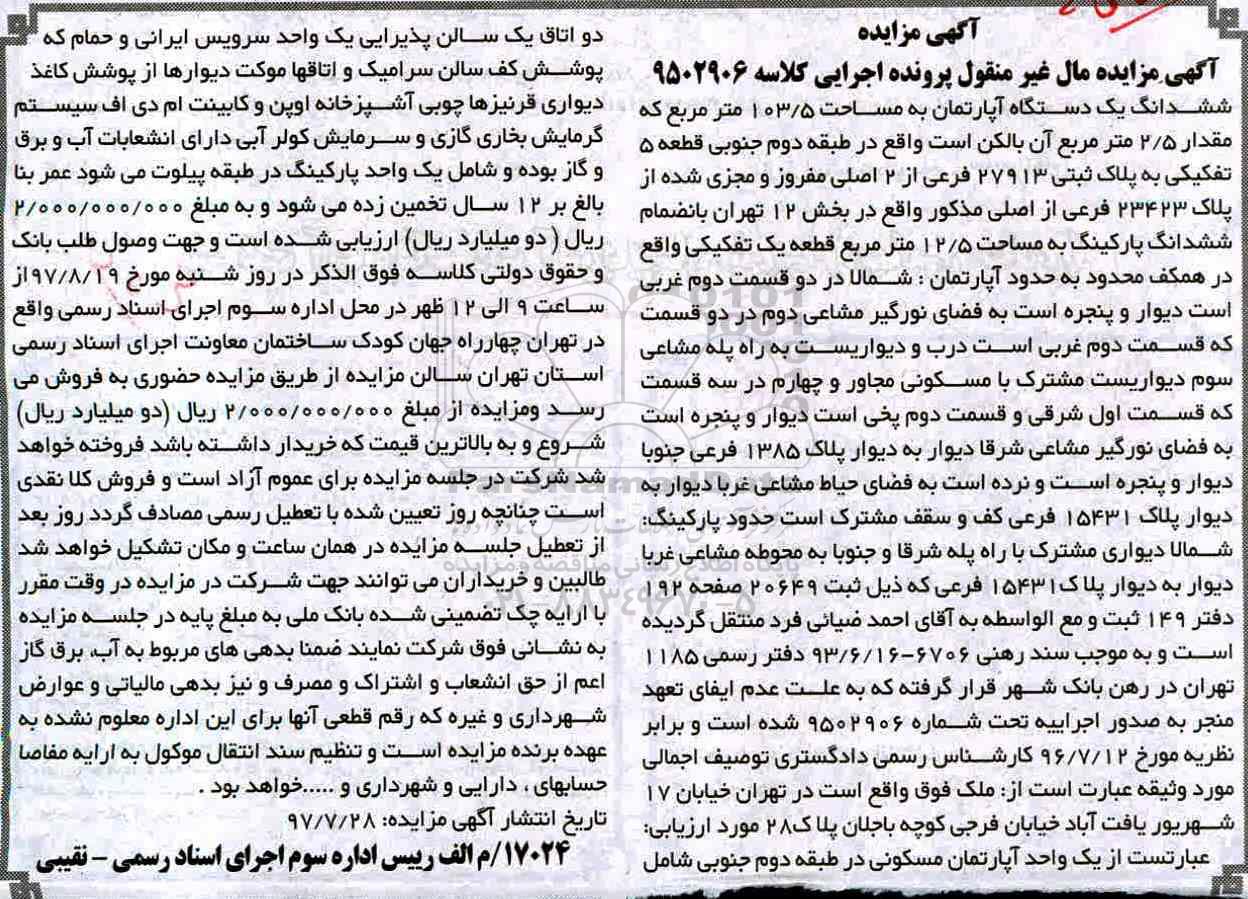 آگهی مزایده
آگهی مزایده مال غیر منقول پرونده اجرایی کلاسه ۹۵۰۲۹۰۶
ششدانگ یک دستگاه آپارتمان به مساحت ۱۰۳/۵ متر مربع که
مقدار ۲/۵ متر مربع آن بالکن است واقع در طبقه دوم جنوبی قطعه ۵
تفکیکی به پلاک ثبتی ۲۷۹۱۳ فرعی از ۲ اصلی مفروز و مجزی شده از
پلاک ۲۳۴۲۳ فرعی از اصلی مذکور واقع در بخش ۱۲ تهران بانضمام
ششدانگ پارکینگ به مساحت ۱۲/۵ متر مربع قطعه یک تفکیکی واقع
در همکف محدود به حدود آپارتمان : شمالا در دو قسمت دوم غربی
است دیوار و پنجره است به فضای نورگیر مشاعی دوم در دو قسمت
که قسمت دوم غربی است درب و دیواریست به راه پله مشاعی
سوم دیواریست مشترک با مسکونی مجاور و چهارم در سه قسمت
که قسمت اول شرقی و قسمت دوم پخی است دیوار و پنجره است
به فضای نورگیر مشاعی شرقا دیوار به دیوار پلاک ۱۳۸۵ فرعی جنوبا
دیوار و پنجره است و نرده است به فضای حیاط مشاعی غربا دیوار به
دیوار پلاک ۱۵۴۳۱ فرعی کف و سقف مشترک است حدود پارکینگ:
شمالا دیواری مشترک با راه پله شرقا و جنوبا به محوطه مشاعی غربا
دیوار به دیوار پلا ک۱۵۴۳۱ فرعی که ذیل ثبت ۲۰۶۴۹ صفحه ۱۹۲
دفتر ۱۴۹ ثبت و مع الواسطه به آقای احمد ضیائی فرد منتقل گردیده
است و به موجب سند رهنی ۶۷۰۶-۹۳/۶/۱۶ دفتر رسمی ۱۱۸۵
تهران در رهن بانک شهر قرار گرفته که به علت عدم ایفای تعهد
منجر به صدور اجراییه تحت شماره ۹۵۰۲۹۰۶ شده است و برابر
نظریه مورخ ۹۶/۷/۱۲ کارشناس رسمی دادگستری توصیف اجمالی
مورد وثیقه عبارت است از: ملک فوق واقع است در تهران خیابان ۱۷
شهریور یافت آباد خیابان فرجی کوچه باجلان پلا ک۲۸ مورد ارزیابی:
عبارتست از یک واحد آپارتمان مسکونی در طبقه دوم جنوبی شامل
دو اتاق یک سالن پذیرایی یک واحد سرویس ایرانی و حمام که
پوشش کف سالن سرامیک و اتاقها موکت دیوارها از پوشش کاغذ
دیواری قرنیزها چوبی آشپزخانه اوپن و کابینت ام دی اف سیستم
گرمایش بخاری گازی و سرمایش کولر آبی دارای انشعابات آب و برق
و گاز بوده و شامل یک واحد پارکینگ در طبقه پیلوت می شود عمر بنا
بالغ بر ۱۲ سال تخمین زده می شود و به مبلغ ۲/۰۰۰/۰۰۰/۰۰۰
ریال ( دو میلیارد ریال) ارزیابی شده است و جهت وصول طلب بانک
و حقوق دولتی کلاسه فوق الذکر در روز شنبه مورخ ۹۷/۸/۱۹از
ساعت ۹ الی ۱۲ ظهر در محل اداره سوم اجرای اسناد رسمی واقع
در تهران چهارراه جهان کودک ساختمان معاونت اجرای اسناد رسمی
استان تهران سالن مزایده از طریق مزایده حضوری به فروش می
رسد ومزایده از مبلغ ۲/۰۰۰/۰۰۰/۰۰۰ ریال (دو میلیارد ریال)
شروع و به بالاترین قیمت که خریدار داشته باشد فروخته خواهد
شد شرکت در جلسه مزایده برای عموم آزاد است و فروش کلا نقدی
است چنانچه روز تعیین شده با تعطیل رسمی مصادف گردد روز بعد
از تعطیل جلسه مزایده در همان ساعت و مکان تشکیل خواهد شد
طالبین و خریداران می توانند جهت شرکت در مزایده در وقت مقرر
با ارایه چک تضمینی شده بانک ملی به مبلغ پایه در جلسه مزایده
به نشانی فوق شرکت نمایند ضمنا بدهی های مربوط به آب، برق گاز
اعم از حق انشعاب و اشتراک و مصرف و نیز بدهی مالیاتی و عوارض
شهرداری و غیره که رقم قطعی آنها برای این اداره معلوم نشده به
عهده برنده مزایده است و تنظیم سند انتقال موکول به ارایه مفاصا
حسابهای ، دارایی و شهرداری و .....خواهد بود .
تاریخ انتشار آگهی مزایده: ۹۷/۷/۲۸
۱۷۰۲۴/م الف رییس اداره سوم اجرای اسناد رسمی - نقیبی